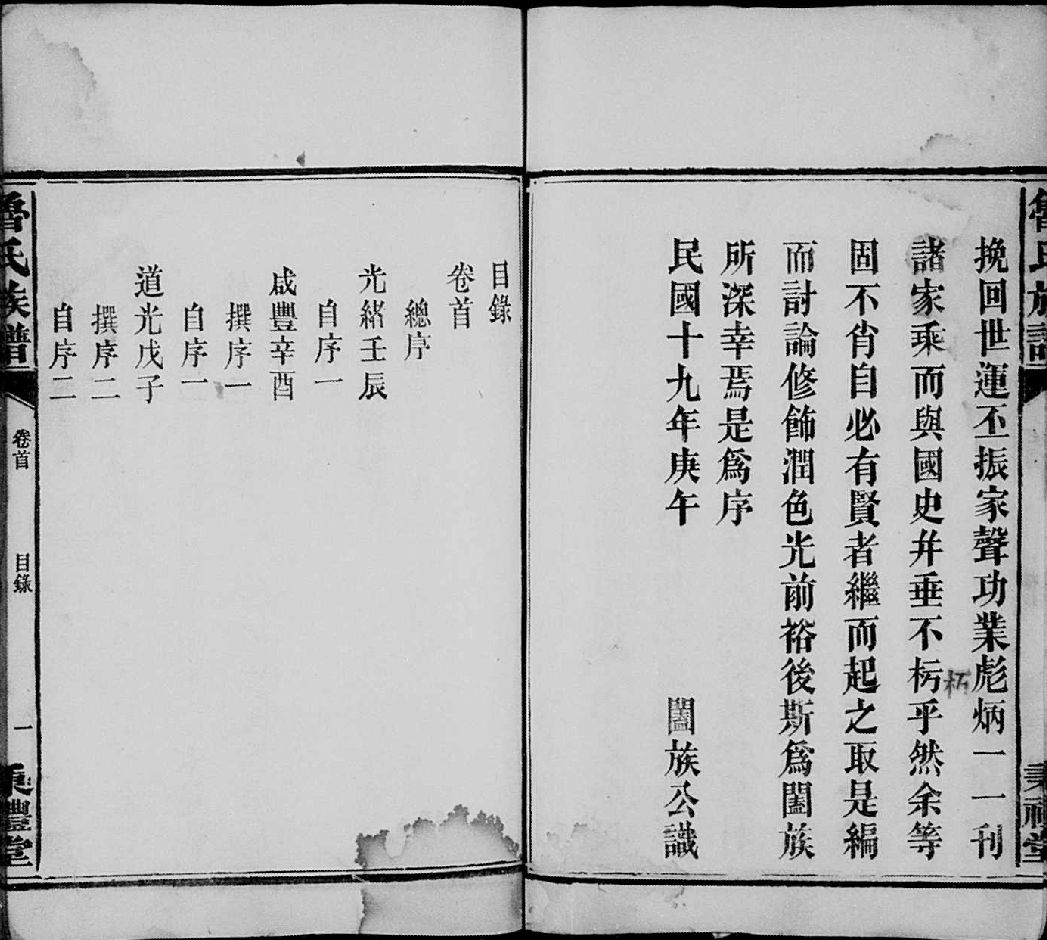 魯氏族譜
秉禮堂
挽回世運丕振家聲功業彪炳一一刊
諸家乘而與國史幷垂不枋乎然余等
朽
固不肯自必有賢者繼而起之取是編
而討論修飾潤色光前裕後斯爲闔族
所深幸焉是爲序
民國十九年庚午 闔族公識
目錄
卷首
總序
光緒壬辰
自序一
咸豐辛酉
撰序一
自序一
道光戊子
撰序二
自序二
魯氏族譜 卷首 目錄 一 秉禮堂